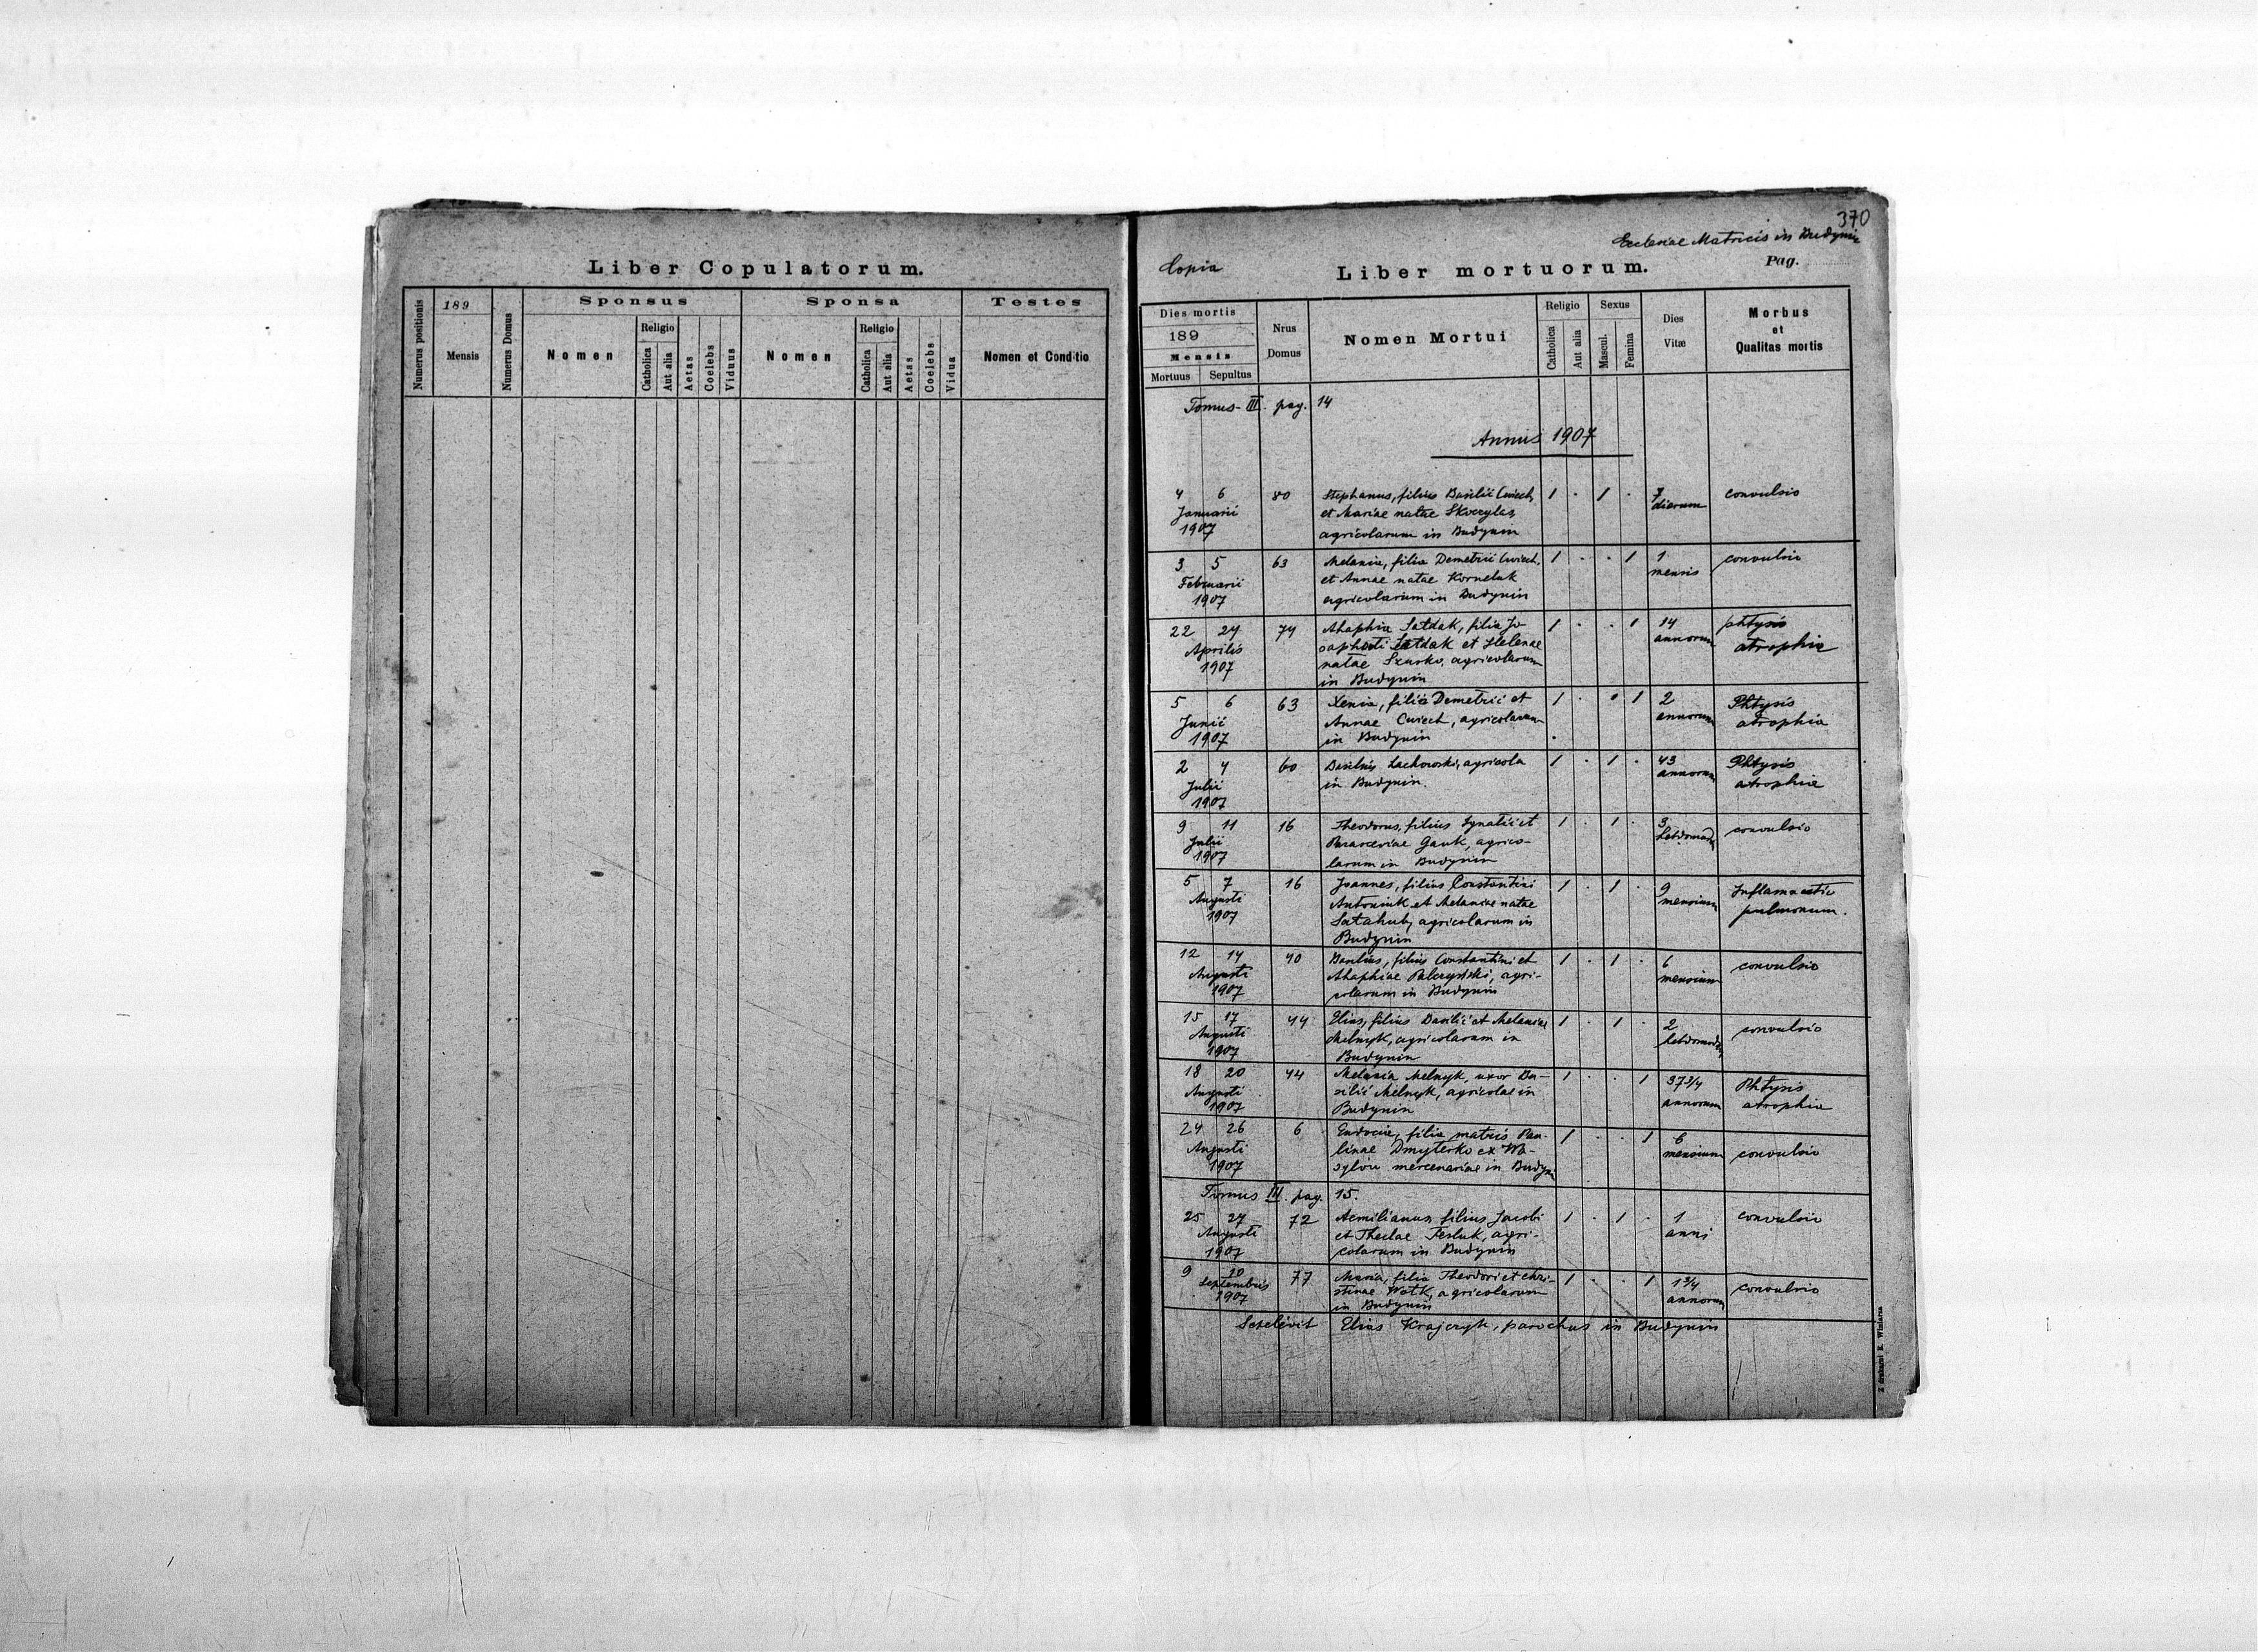 Liber Copulatorum.
Numerus positionis
189
Mensis
Numerus Domus
Sponsus
Nomen
Religio
Catholica
Aut alia
Aetas
Coelebs
Viduus
Sponsa
Nomen
Religio
Catholica
Aut alia
Aetas
Coelebs
Vidua
Testes
Nomen et Conditio
370
Ecclesiae Matricis in Budynin
Copia
Liber mortuorum.
Pag.
Dies mortis
189
Mensis
Mortuus Sepultus
Nrus
Domus
Nomen Mortui
Religio
Catholica
Aut alia
Sexus
Mascul.
Femina
Dies
Vitæ
Morbus
et
Qualitas mortis
Tomus III. pag. 14
Annus 1907
4 6 80 Stephanus, filius Basilii Cwiech, 1 . 1 . 7 convulsio
Januarii et Mariae natae Skoczylas, dierum
1907 agricolarum in Budynin
3 5 63 Melania, filia Demetrii Cwiech, 1 . . 1 1 convulsio
Februarii et Annae natae Korneluk mensis
1907 agricolarum in Budynin
22 24 74 Ahaphia Sałdak, filia Jo- 1 . . 1 14 phtysis
Aprilis saphati Sałdak et Helenae annorum atrophia
1907 natae Szurko, agricolarum
in Budynin
5 6 63 Xenia, filia Demetrii et 1 . . 1 2 Phtysis
Junii Annae Cwiech, agricolarum annorum atrophia
1907 in Budynin
2 4 60 Basilius Lachowski, agricola 1 . 1 . 43 Phtysis
Julii in Budynin. annorum atrophia
1907
9 11 16 Theodorus, filius Ignatii et 1 . 1 . 3 convulsio
Julii Parasceviae Gauk, agrico-
1907 larum in Budynin
5 7 16 Joannes, filius Constantini 1 . 1 . 9 Inflamatio
Augusti Antoniuk et Melaniae natae mensium pulmonum.
1907 agricolarum in
Budynin
12 14 40 Basilius, filius Constantini et 1 . 1 . 6 convulsio
Augusti Ahaphiae Palczyński, agri- mensium
1907 colarum in Budynin
15 17 44 Elias, filius Basilii et Melaniae 1 . 1 . 2 convulsio
Augusti Melnyk, agricolarum in
1907 Budynin
18 20 44 Melania Melnyk, uxor Ba- 1 . . 1 37 3/4 Phtysis
Augusti silii Melnyk, agricolae in annorum atrophia
1907 Budynin
24 26 6 Eudocia, filia matris Pau- 1 . . 1 6
Augusti linae Dmyterko ex Wa- mensium convulsio
1907 sylów mercenariae in Budynin
Tomus III. pag. 15.
25 27 72 Aemilianus, filius Jacobi 1 . 1 . 1 convulsio
Augusti et Theclae Fesluk, agri- anni
1907 colarum in Budynin
9 10 77 Maria, filia Theodori et Chri- 1 . . 1 1 3/4 convulsio
Septembris stinae Wołk, agricolarum annorum
1907 in Budynin
Sepelivit Elias Krajczyk, parochus in Budynin
Z drukarni E. Winiarza